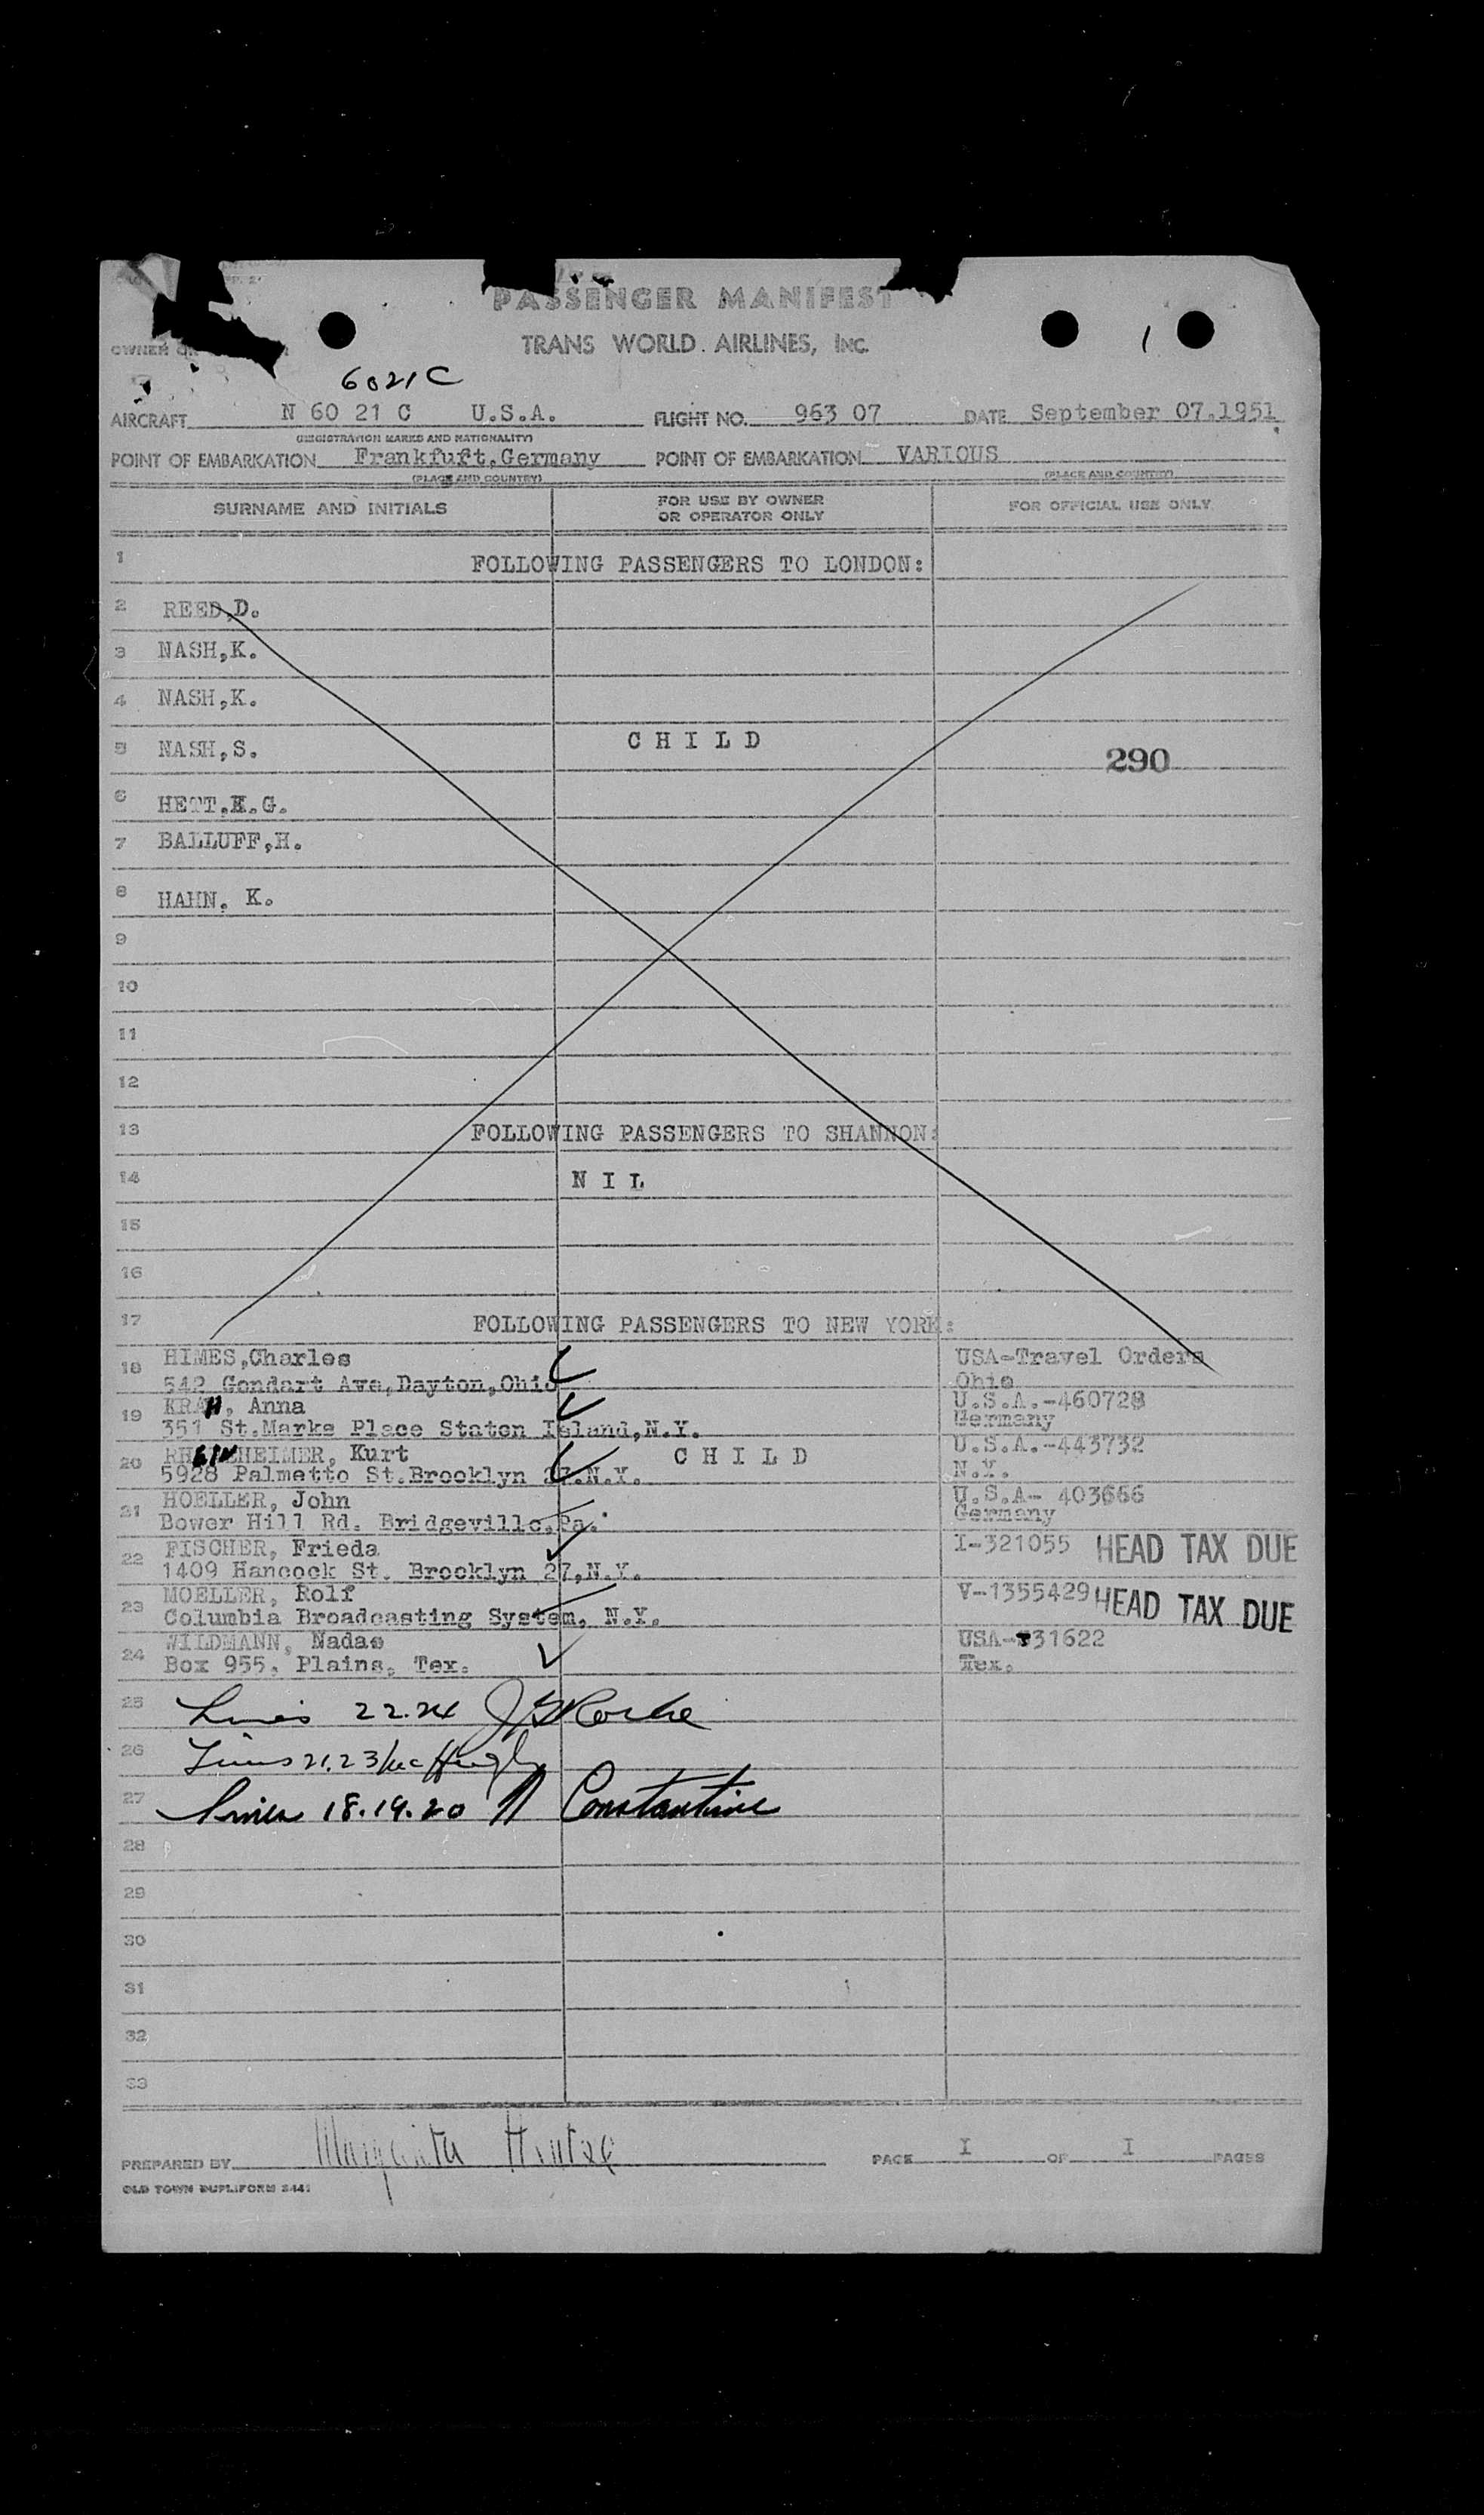 PASSENGER MANIFEST
TRANS WORLD AIRLINES, INC.
OWNER OR
6021C
AIRCRAFT N 60 21 C U.S.A. FLIGHT NO. 963 07 DATE September 07.1951
(REGISTRATION MARKS AND NATIONALITY)
POINT OF EMBARKATION Frankfurt,Germany POINT OF EMBARKATION VARIOUS
(PLACE AND COUNTRY) (PLACE AND COUNTRY)
SURNAME AND INITIALS FOR USE BY OWNER OR OPERATOR ONLY FOR OFFICIAL USE ONLY
1 FOLLOWING PASSENGERS TO LONDON:
2 REED,D.
3 NASH,K.
4 NASH,K.
5 NASH,S. C H I L D 290
6 HETT.K.G.
7 BALLUFF,H.
8 HAHN. K.
9
10
11
12
13 FOLLOWING PASSENGERS TO SHANNON:
14 N I L
15
16
17 FOLLOWING PASSENGERS TO NEW YORK:
18 HIMES,Charles USA-Travel Orders
542 Gondart Ave,Dayton,Ohio Ohio
19 KRAH, Anna U.S.A.-460728
351 St.Marks Place Staten Island,N.Y. Germany
20 RHEINHEIMER, Kurt C H I L D U.S.A.-443732
5928 Palmetto St.Brooklyn 27.N.Y. N.Y.
21 HOELLER, John U.S.A- 403666
Bower Hill Rd. Bridgeville,Pa. Germany
22 FISCHER, Frieda I-321055 HEAD TAX DUE
1409 Hancock St. Brooklyn 27,N.Y.
23 MOELLER, Rolf V-1355429 HEAD TAX DUE
Columbia Broadcasting System, N.Y.
24 WILDMANN, Nadas USA- 31622
Box 955, Plains, Tex. Tex.
25 Lines 22.24
26 Lines 21.23
27 Lines 18.19.20 Constantine
28
29
30
31
32
33
PREPARED BY PAGE I OF I PAGES
OLD TOWN DUPLIFORM 2441